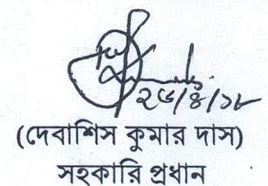 ২৬/৪/১৮
(দেবাশিস কুমার দাস)
সহকারি প্রধান